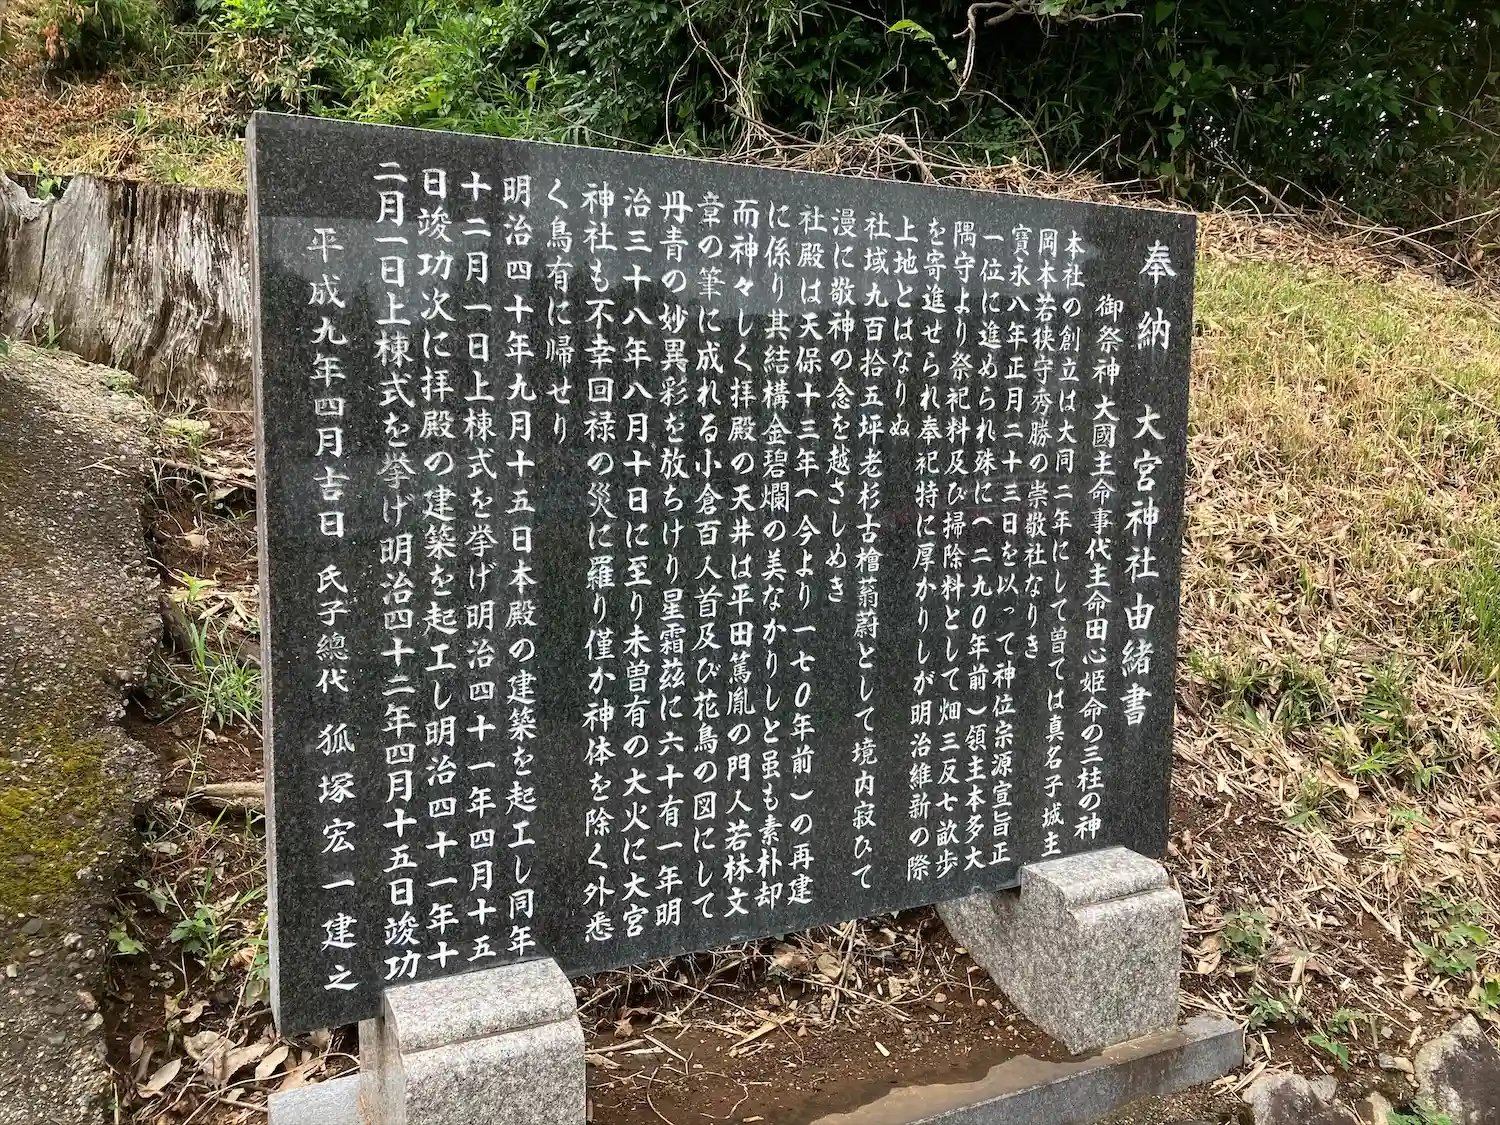 奉納 大宮神社由緒書
御祭神 大國主命事代主命田心姫命の三柱の神
本社の創立は大同二年にして曽ては真名子城主
岡本若狭守秀勝の崇敬社なりき
寳永八年正月二十三日を以って神位宗源宣旨正
一位に進められ殊に(二九〇年前)領主本多大
隅守より祭祀料及び掃除料として畑三反七畝歩
を寄進せられ奉祀特に厚かりしが明治維新の際
上地とはなりぬ
社域九百拾五坪老杉古檜蓊蔚として境内寂びて
漫に敬神の念を越さしめき
社殿は天保十三年(今より一七〇年前)の再建
に係り其結構金碧爛の美なかりしと虽も素朴却
而神々しく拝殿の天井は平田篤胤の門人若林文
章の筆に成れる小倉百人首及び花鳥の図にして
丹青の妙異彩を放ちけり星霜茲に六十有一年明
治三十八年八月十日に至り未曽有の大火に大宮
神社も不幸回禄の災に羅り僅か神体を除く外悉
く烏有に帰せり
明治四十年九月十五日本殿の建築を起工し同年
十二月一日上棟式を挙げ明治四十一年四月十五
日竣功次に拝殿の建築を起工し明治四十一年十
二月一日上棟式を挙げ明治四十二年四月十五日竣功
平成九年四月吉日 氏子總代 狐塚宏一建之